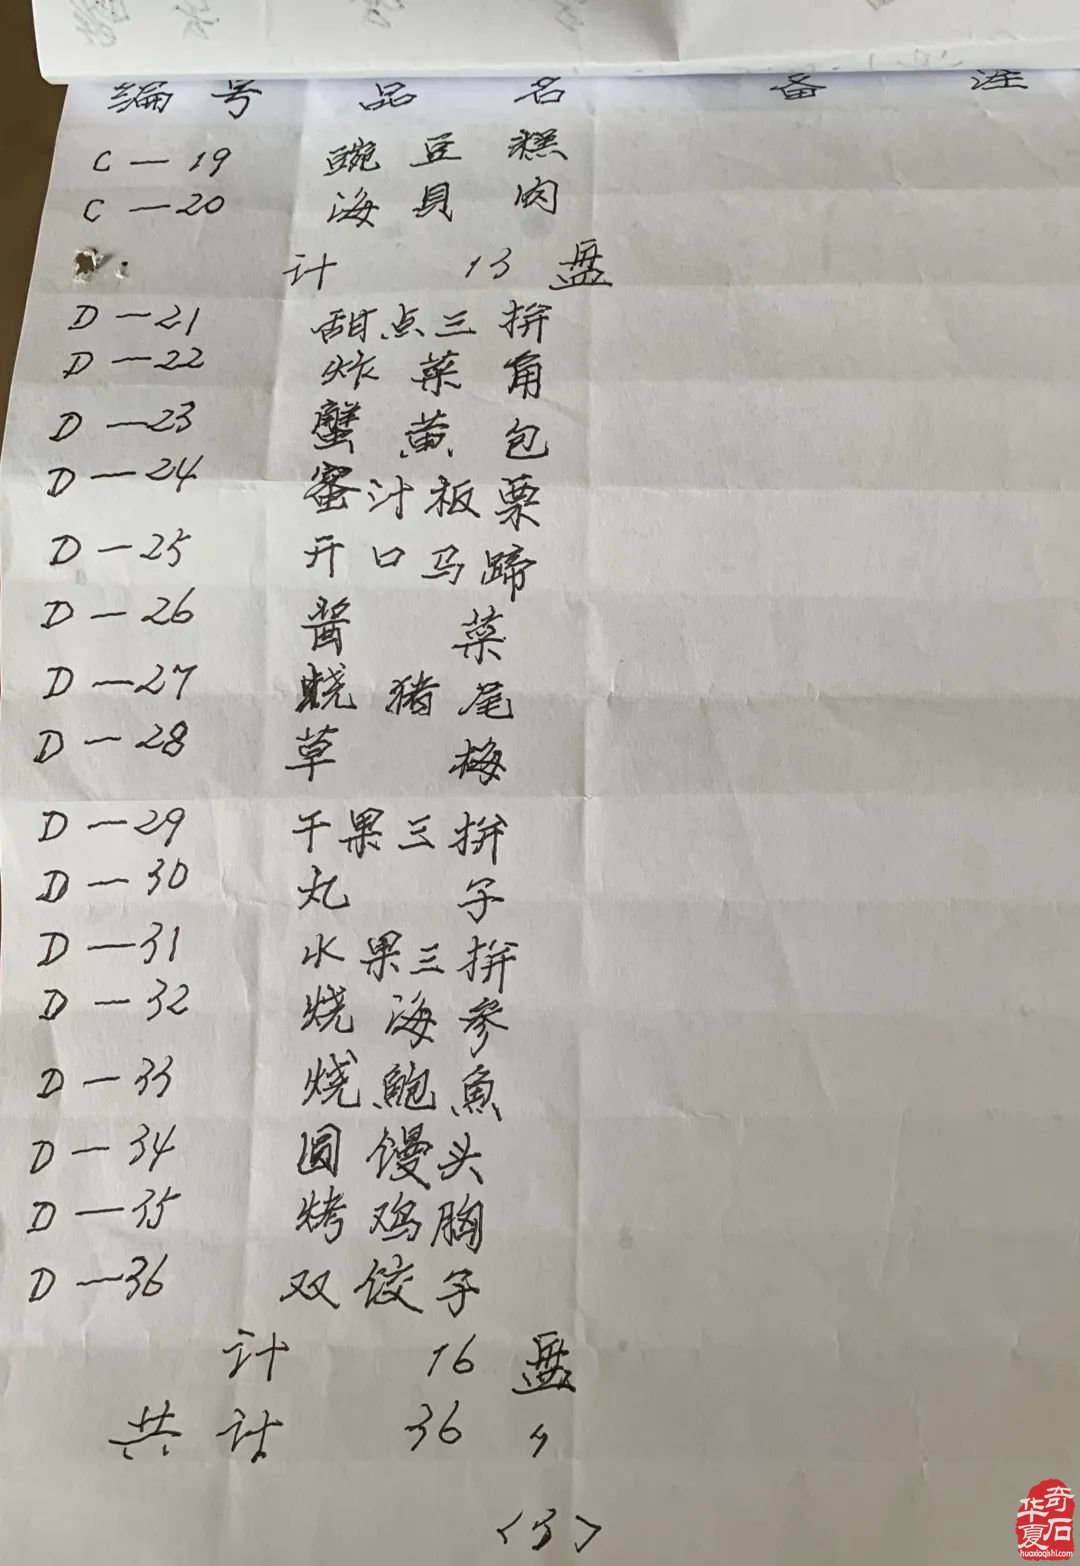 编号 品名 备注
C—19 豌豆糕
C—20 海貝肉
计 13 盘
D—21 甜点三拼
D—22 炸菜角
D—23 蟹黄包
D—24 蜜汁板栗
D—25 开口马蹄
D—26 酱菜
D—27 烧猪尾
D—28 草梅
D—29 干果三拼
D—30 丸子
D—31 水果三拼
D—32 烧海参
D—33 烧鲍魚
D—34 圆馒头
D—35 烤鸡胸
D—36 双饺子
计 16 盘
共计 36 〃
<3>
华夏奇石
huaxiaqishi.com